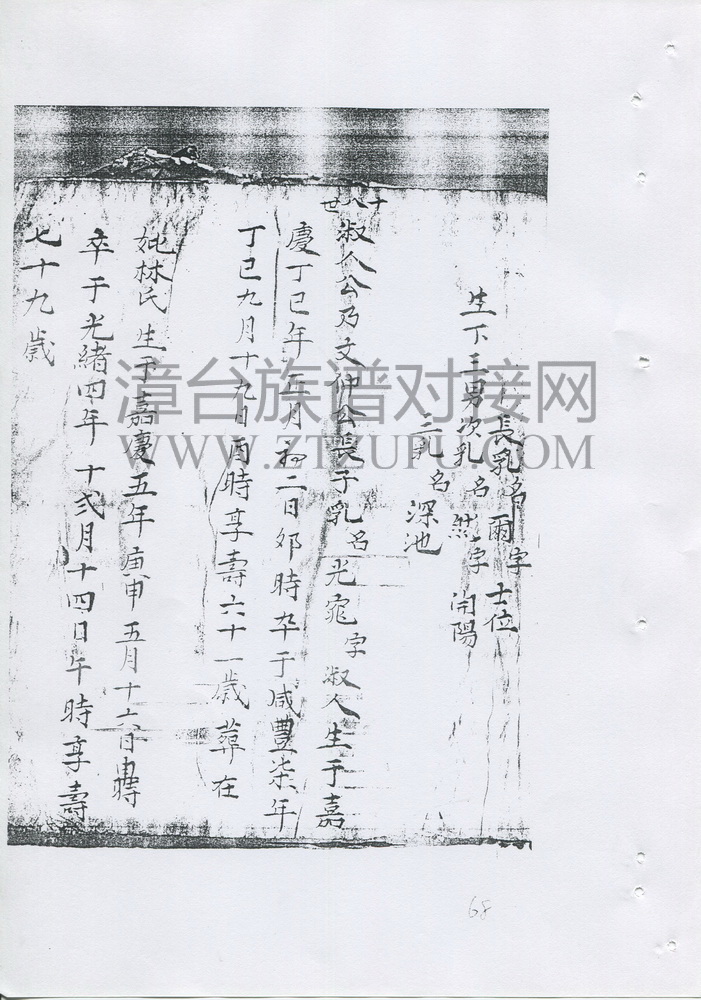 長乳名爾字士位
生下三男次乳名然字開陽
三乳名深池
十八世
淑人公乃文仲公長子乳名光寵字淑人生于嘉
慶丁巳年五月初二日卯時卒于咸豐柒年
丁巳九月十九日酉時享壽六十一歲葬在
妣林氏生于嘉慶五年庚申五月十六日申時
卒于光緒四年十弍月十四日午時享壽
七十九歲
漳台族谱对接网
WWW.ZTZUPU.COM
68